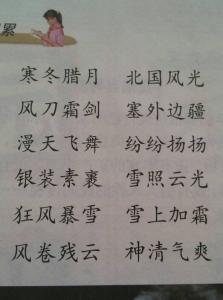 累
寒冬腊月 北国风光
风刀霜剑 塞外边疆
漫天飞舞 纷纷扬扬
银装素裹 雪照云光
狂风暴雪 雪上加霜
风卷残云 神清气爽